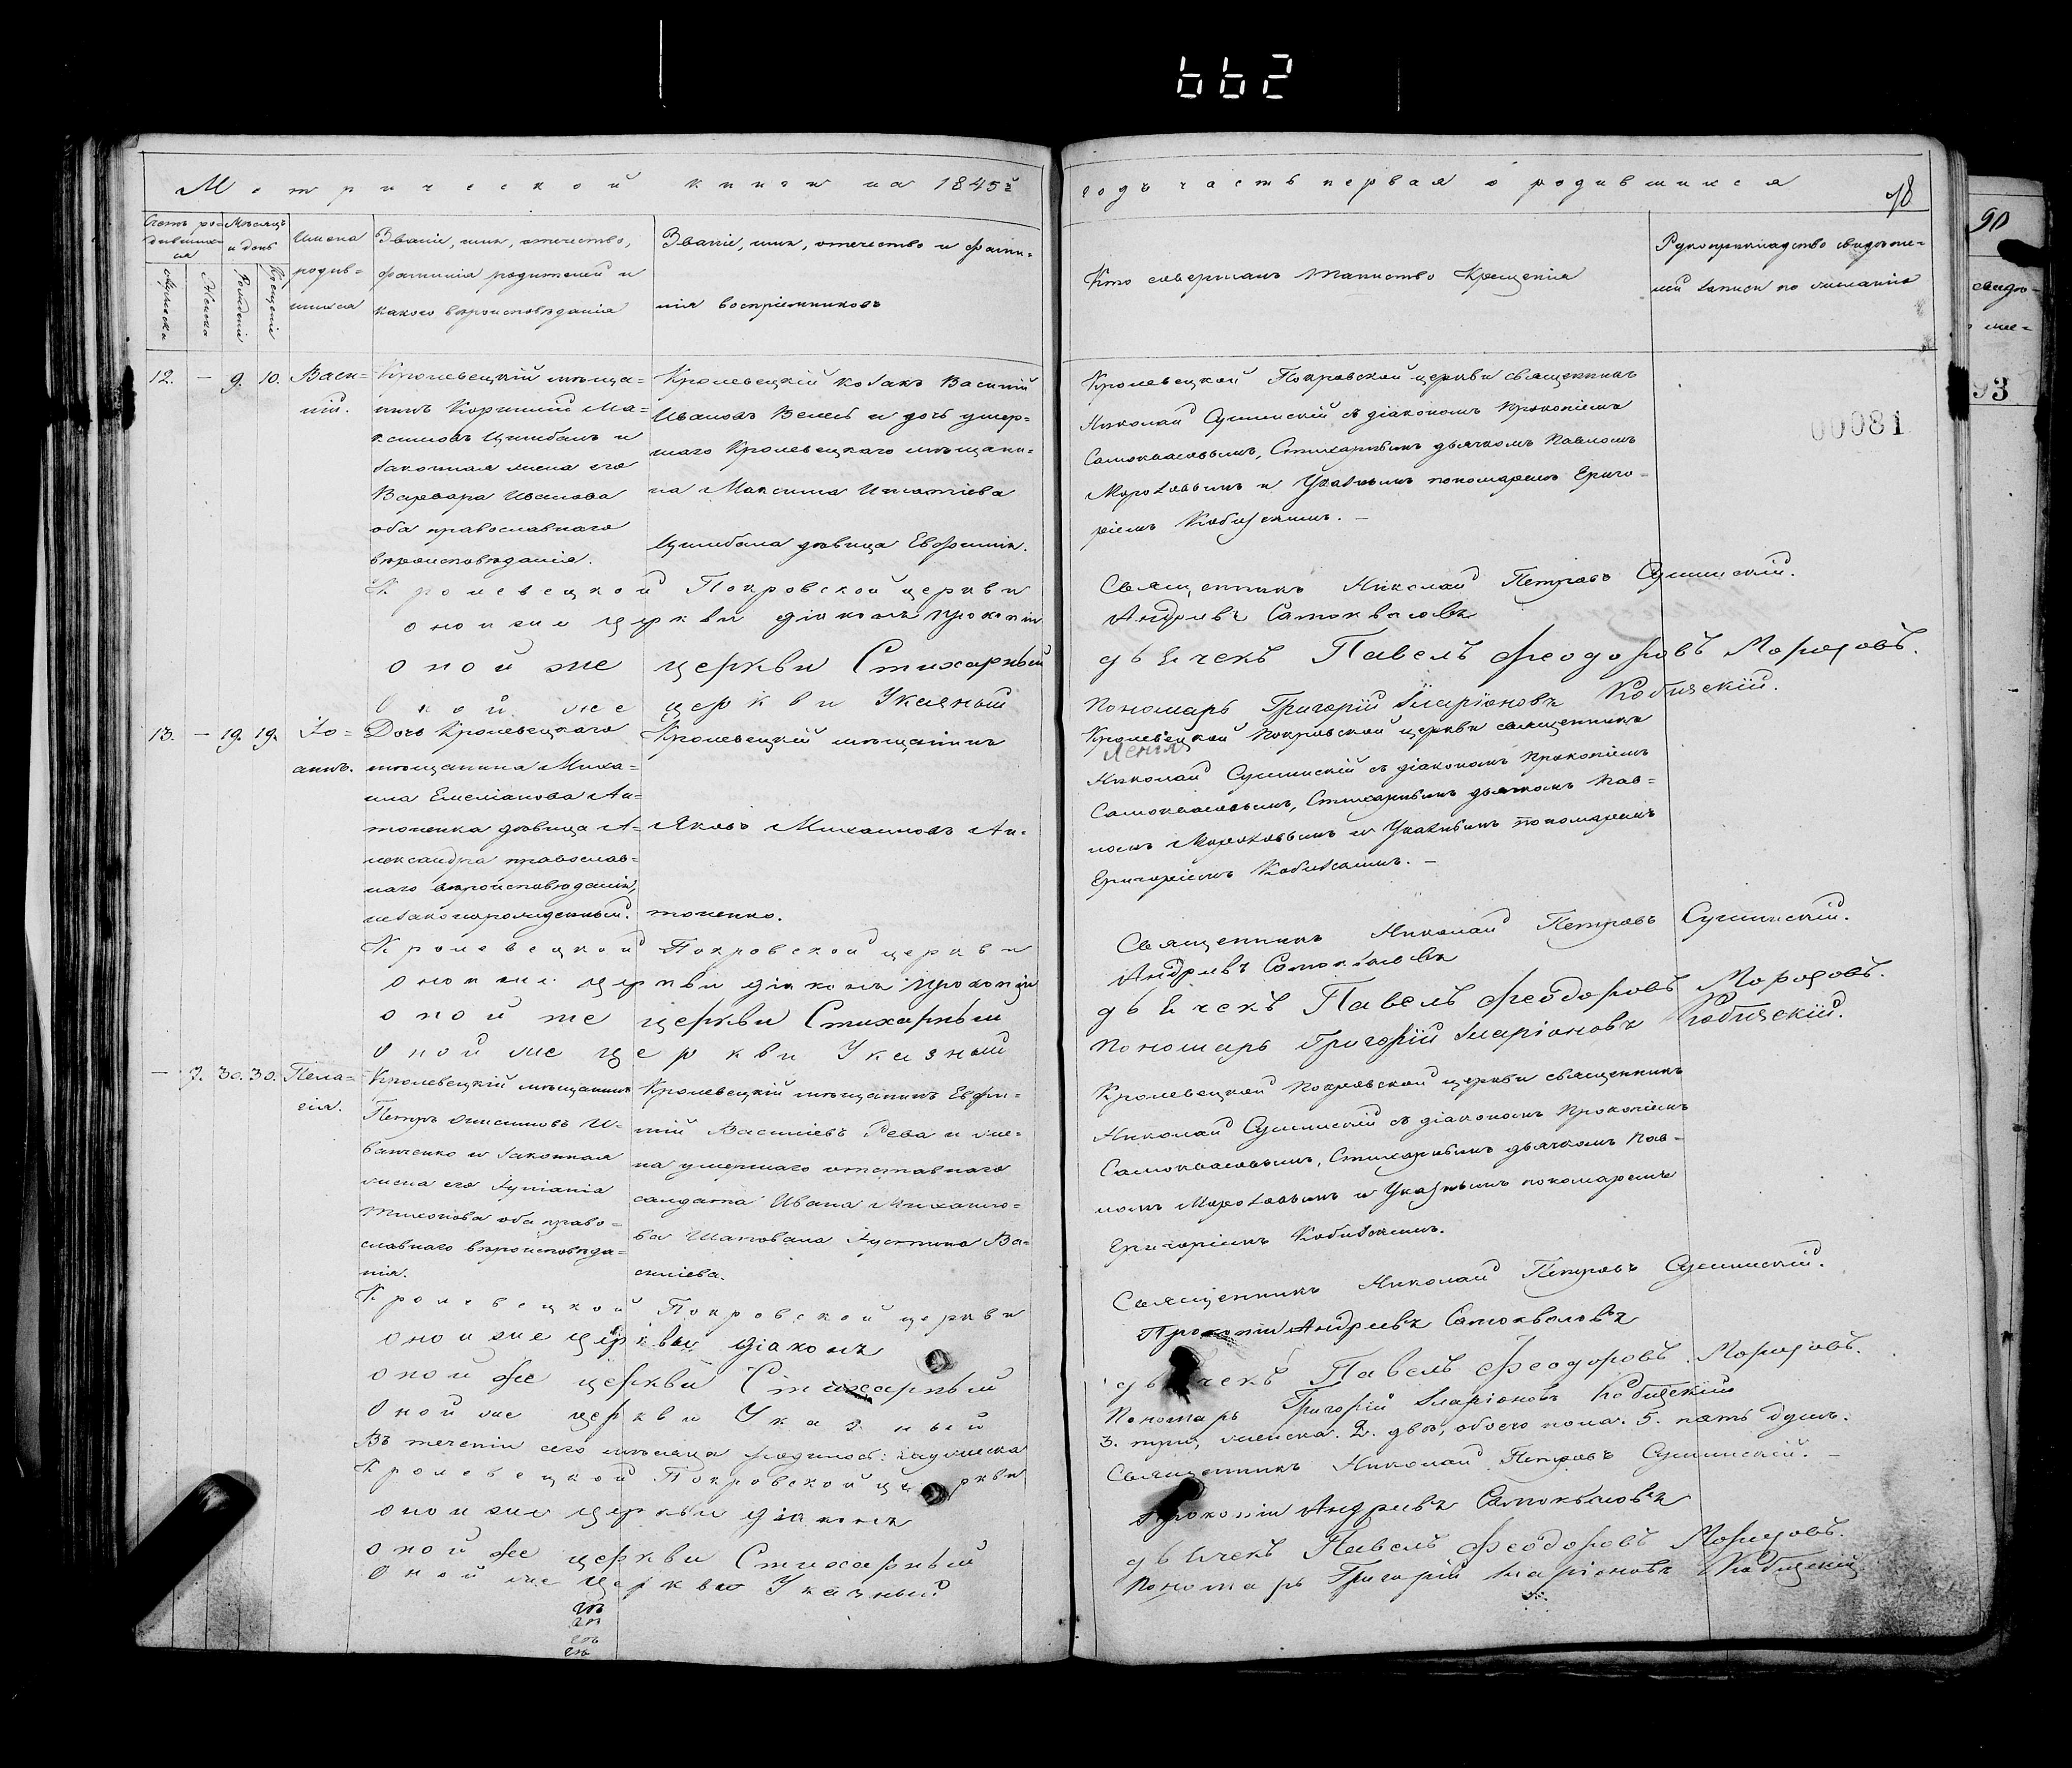 662
Метрической книги на 1845й
годъ часть первая о родившихся
78
Счетъ ро=
дивших=
ся
Мѣсяцъ
и день
Имена
родив=
шихся
Званіе, имя, отечество,
фамилія родителей и
какого вѣроисповѣданія
Званіе, имя, отечество и фами=
лія воспріемниковъ
Кто совершалъ таинство Крещенія
Рукоприкладство свидѣте=
лей записи по желанію
Мужеска
Женска
Рожденія
Крещенія
90
свидѣ=
93
00081
12. — 9. 10. Васи=
лій.
Кролевецкій мѣща=
нинъ Корнилій Ма=
ксимовъ Цимбалъ и
законная жена его
Варвара Иванова
оба православнаго
вѣроисповѣданія.
Кролевецкій козакъ Василій
Ивановъ Велесъ и дочь умер=
шаго Кролевецкаго мѣщани=
на Максима Игнатіева
Цимбала дѣвица Евфимія.
Кролевецкой Покровской церкви священникъ
Николай Сушинскій съ діакономъ Прокопіемъ
Самоквасовымъ, Стихарнымъ дьячкомъ Павломъ
Морозовымъ и Указнымъ пономаремъ Григо=
ріемъ Кобизскимъ. —
Кролевецкой Покровской церкви
Священникъ Николай Петровъ Сушинскій.
оной же церкви діаконъ Прокопій
Андреевъ Самоквасовъ
оной же церкви Стихарный
дьячекъ Павелъ Феодоровъ Морозовъ.
Оной же церкви Указный
Пономарь Григорій Иларіоновъ Кобизскій.
13. — 19. 19. Іо=
аннъ.
Дочь Кролевецкаго
мѣщанина Миха=
ила Емеліанова Ан=
тоненка дѣвица А=
лександра православ=
наго вѣроисповѣданія,
незаконорожденный.
Кролевецкій мѣщанинъ
Яковъ Михаиловъ Ан=
тоненко.
Кролевецкой Покровской церкви священникъ
Николай Сушинскій съ діакономъ Прокопіемъ
Самоквасовымъ, Стихарнымъ дьячкомъ Пав=
ломъ Морозовымъ и Указнымъ пономаремъ
Григоріемъ Кобизскимъ. —
Кролевецкой Покровской церкви
Священникъ Николай Петровъ Сушинскій.
оной же церкви діаконъ Прокопій
Андреевъ Самоквасовъ
оной же церкви Стихарный
дьячекъ Павелъ Феодоровъ Морозовъ.
Оной же церкви Указный
Пономарь Григорій Иларіоновъ Кобизскій.
— 7. 30. 30. Пела=
гія.
Кролевецкій мѣщанинъ
Петръ Онисимовъ И=
ванченко и законная
жена его Іуліанія
Тихонова оба право=
славнаго вѣроисповѣда=
нія.
Кролевецкій мѣщанинъ Евфи=
мій Василіевъ Рева и же=
на умершаго отставнаго
салдата Ивана Михаило=
ва Шаповала Іустина Ва=
силіева.
Кролевецкой Покровской церкви священникъ
Николай Сушинскій съ діакономъ Прокопіемъ
Самоквасовымъ, Стихарнымъ дьячкомъ Пав=
ломъ Морозовымъ и Указнымъ пономаремъ
Григоріемъ Кобизскимъ.
Кролевецкой Покровской церкви
Священникъ Николай Петровъ Сушинскій.
оной же церкви діаконъ
Прокопій Андреевъ Самоквасовъ
оной же церкви Стихарный
дьячекъ Павелъ Феодоровъ Морозовъ.
Оной же церкви Указный
Пономарь Григорій Иларіоновъ Кобизскій
Въ теченіи сего мѣсяца родилось: мужеска
3. три, женска. 2. двѣ, обоего пола. 5. пять душъ.
Кролевецкой Покровской церкви
Священникъ Николай Петровъ Сушинскій. —
оной же церкви діаконъ
Прокопій Андреевъ Самоквасовъ
оной же церкви Стихарный
дьячекъ Павелъ Феодоровъ Морозовъ.
Оной же церкви Указный
Пономарь Григорій Иларіоновъ Кобизскій